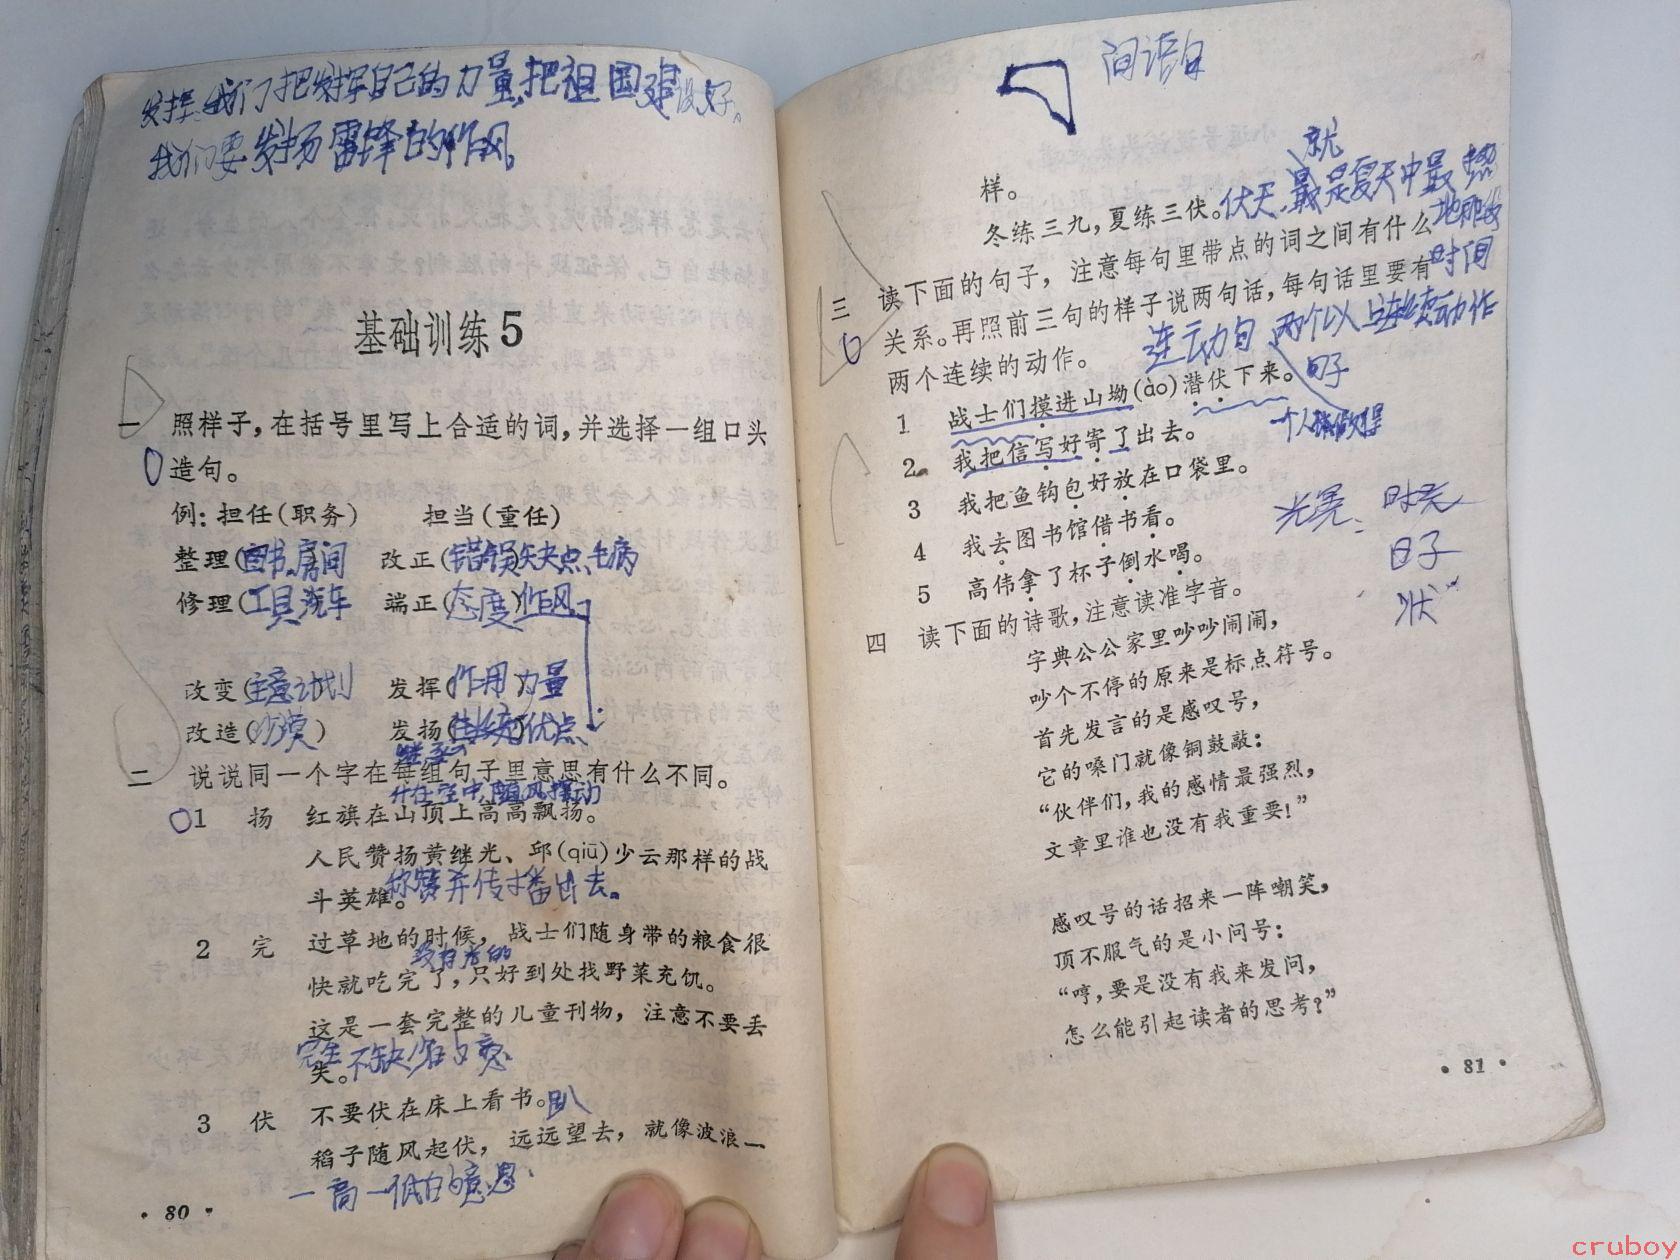 我们要发扬雷锋的作风。
基础训练5
一 照样子，在括号里写上合适的词，并选择一组口头
造句。
例：担任(职务) 担当(重任)
整理(图书、房间 改正(错误、缺点、毛病
修理(工具 汽车 端正(态度)作风
改变(主意 计划 发挥(作用 力量
改造(沙漠) 发扬( 优点
二 说说同一个字在每组句子里意思有什么不同。
1 扬 红旗在山顶上高高飘扬。
人民赞扬黄继光、邱(qiū)少云那样的战
斗英雄。称赞并传播出去。
2 完 过草地的时候，战士们随身带的粮食很
快就吃完了，只好到处找野菜充饥。
这是一套完整的儿童刊物，注意不要丢
失。
3 伏 不要伏在床上看书。趴
稻子随风起伏，远远望去，就像波浪一
一高一低的意思
· 80 ·
样。
就
冬练三九，夏练三伏。伏天 是夏天中最热
时间
三 读下面的句子，注意每句里带点的词之间有什么
关系。再照前三句的样子说两句话，每句话里要有
两个连续的动作。
连动句 两个以上连续动作
句子
1 战士们摸进山坳(ào)潜伏下来。
2 我把信写好寄了出去。
3 我把鱼钩包好放在口袋里。
4 我去图书馆借书看。
5 高伟拿了杯子倒水喝。
日子
状
四 读下面的诗歌，注意读准字音。
字典公公家里吵吵闹闹，
吵个不停的原来是标点符号。
首先发言的是感叹号，
它的嗓门就像铜鼓敲：
“伙伴们，我的感情最强烈，
文章里谁也没有我重要！”
感叹号的话招来一阵嘲笑，
顶不服气的是小问号：
“哼，要是没有我来发问，
怎么能引起读者的思考？”
· 81 ·
cruboy